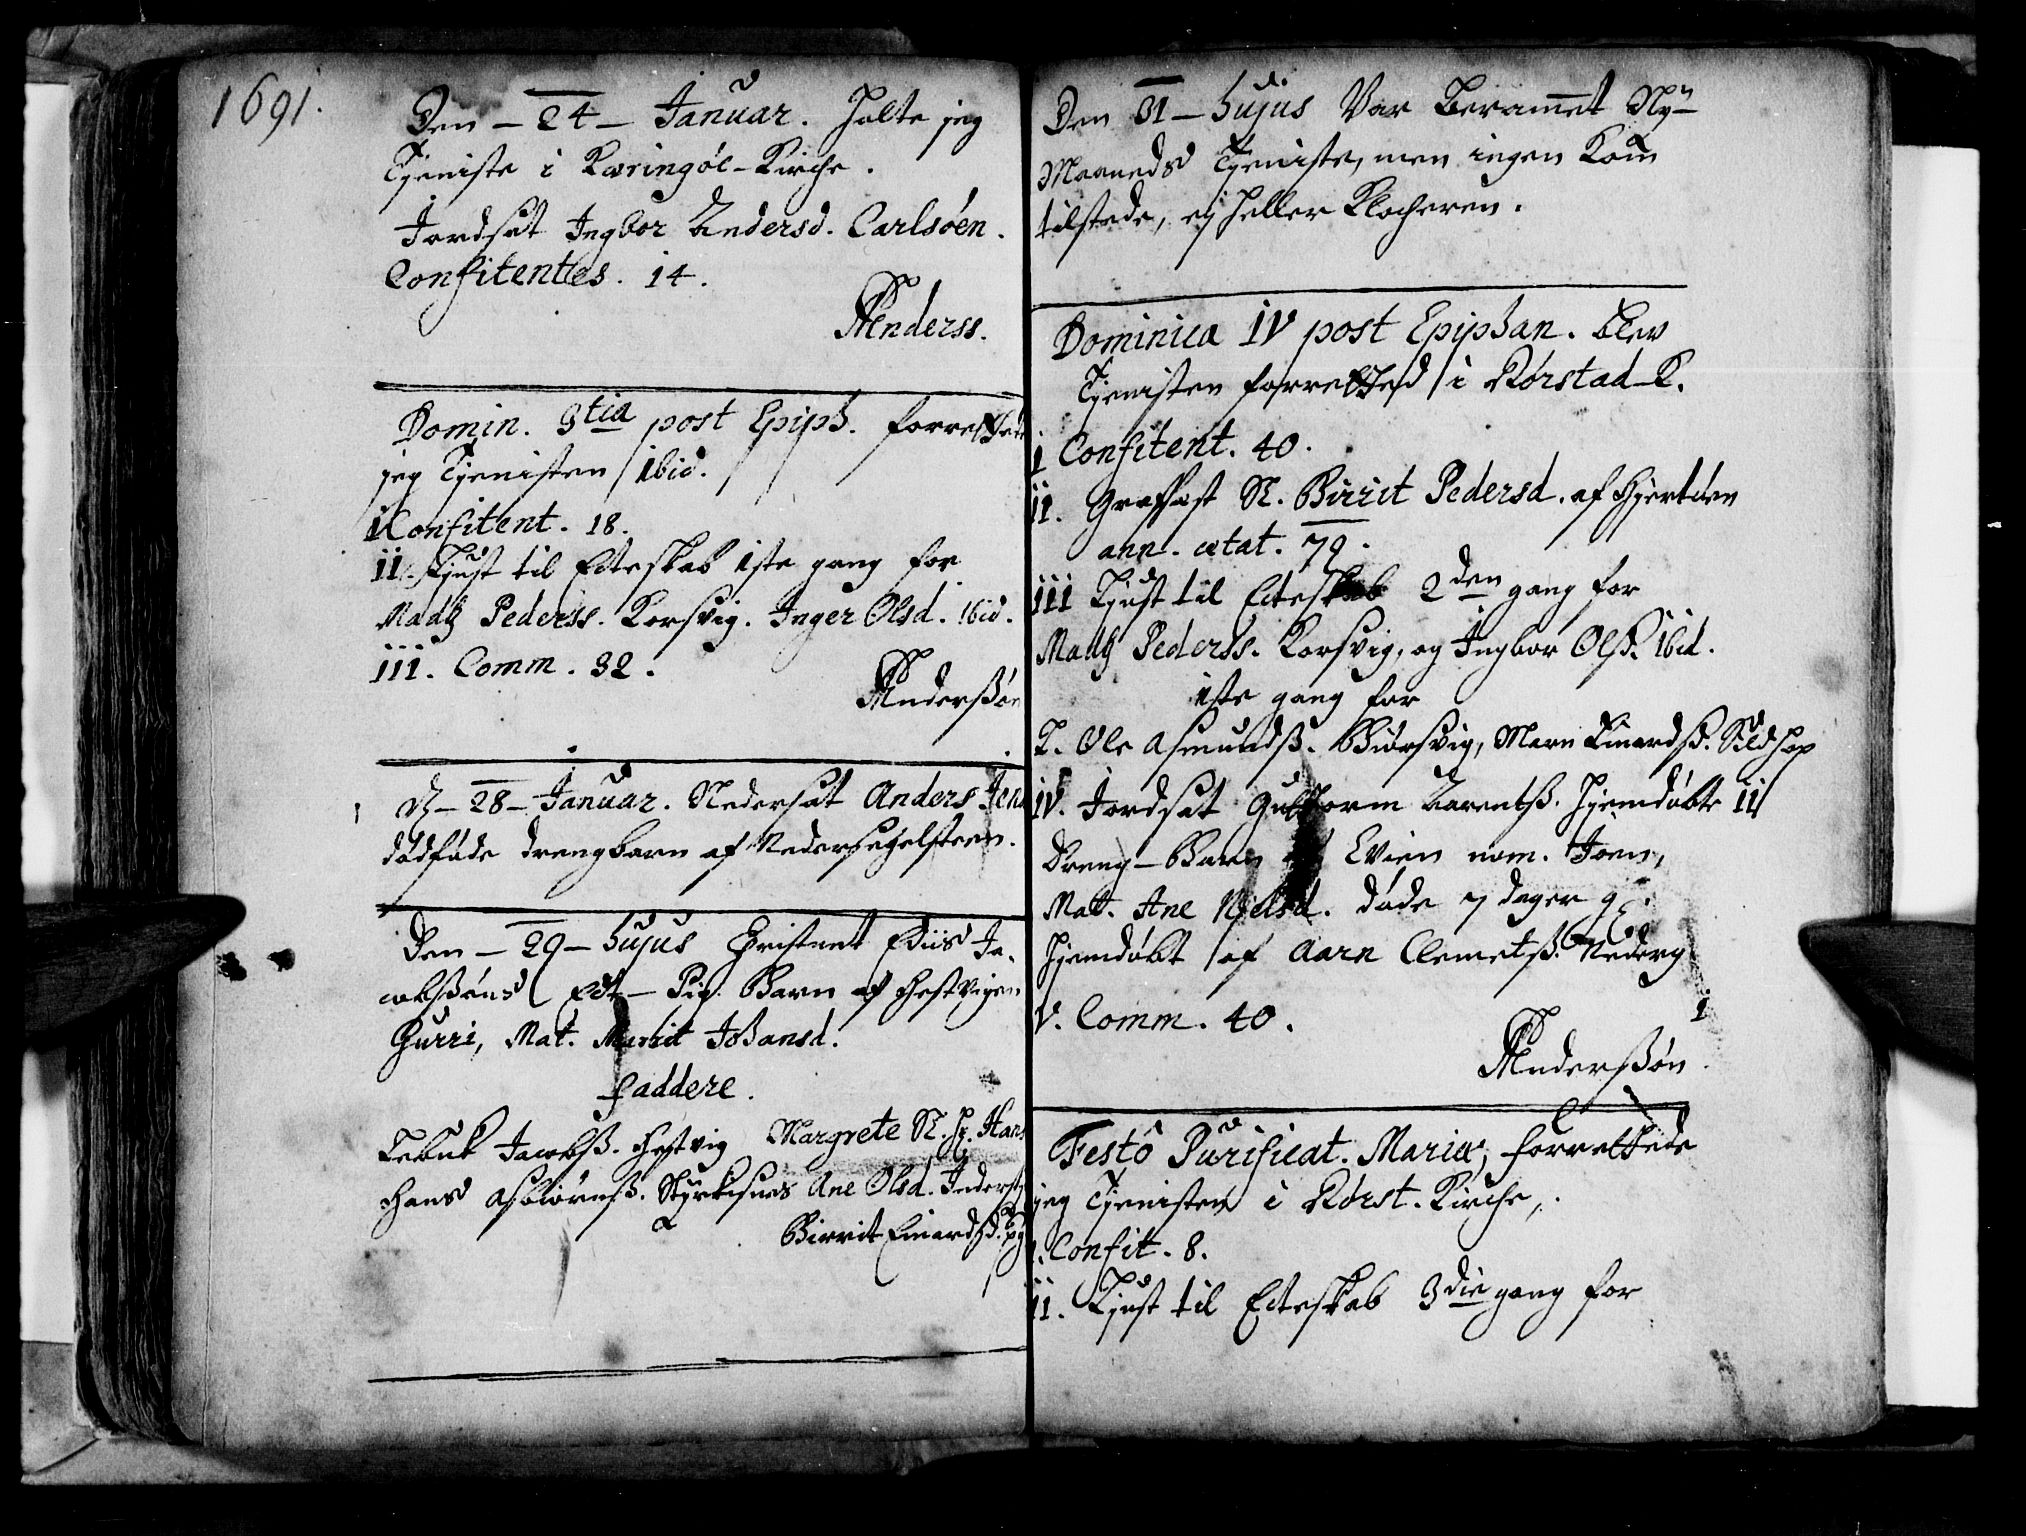 1691.
Den – 24 – Januar. holte jeg
Tjeniste i Kæringøe-Kirche.
Jordsat Ingbor Andersd. Carlsøen.
Confitentes. 14.
Anderss.
Domin. 3tia post Epiph. forrettede
jeg Tjenisten ibid.
i Confitent. 18.
ii. Liust til Ecteskab 1ste gang for
Madtz Pederss. Korsvig. Inger Olsd. ibid.
iii. Comm. 32.
Anderssøn
D – 28 – Januar. Nedersat Anders Jens
dødføde drengbarn af Neder
Den – 29 – hujus Christnet Ediis Ja-
cobssøns Ect – Pig. Barn af Hestvigen
Gurri, Mat. Marit Johansd.
Faddere.
Jacobss. Hestvig Margrete N. Hans
Hans Asbiørnss. Styrkisnes Ane Olsd.
Birrit Einardsd.
Den 31 – hujus Var Beramet Ny-
Maaneds Tjeniste, men ingen Kom
tilstede, ej heller Klocheren.
Dominica IV post Epiphan. blev
Tjenisten forretted i Rørstad-K.
i Confitent. 40.
ii. Graffast N. Birrit Pedersd. af Hjertøen
ann. ætat. 79.
iii Liust til Ecteskab 2den gang for
Madtz Pederss. Korsvig, og Ingbor Olsd. ibid.
1ste gang for
Ole Asmundss. Biørsvig, Marn Einardsd. Sildhop
iv. Jordsat Guttorm Barentss. hjemdøbte
Dreng – Barn af Evien nom. Joen,
Mat. Ane Nielsd. døde 7 dager g.
hjemdøbt af Aarn Clemetss. Nederg
v. Comm. 40.
Anderssøn
Festô Purificat. Mariæ, forrettede
jeg Tjenisten i Rørst. Kirche,
i. Confit. 8.
ii. Liust til Ecteskab 3die gang for